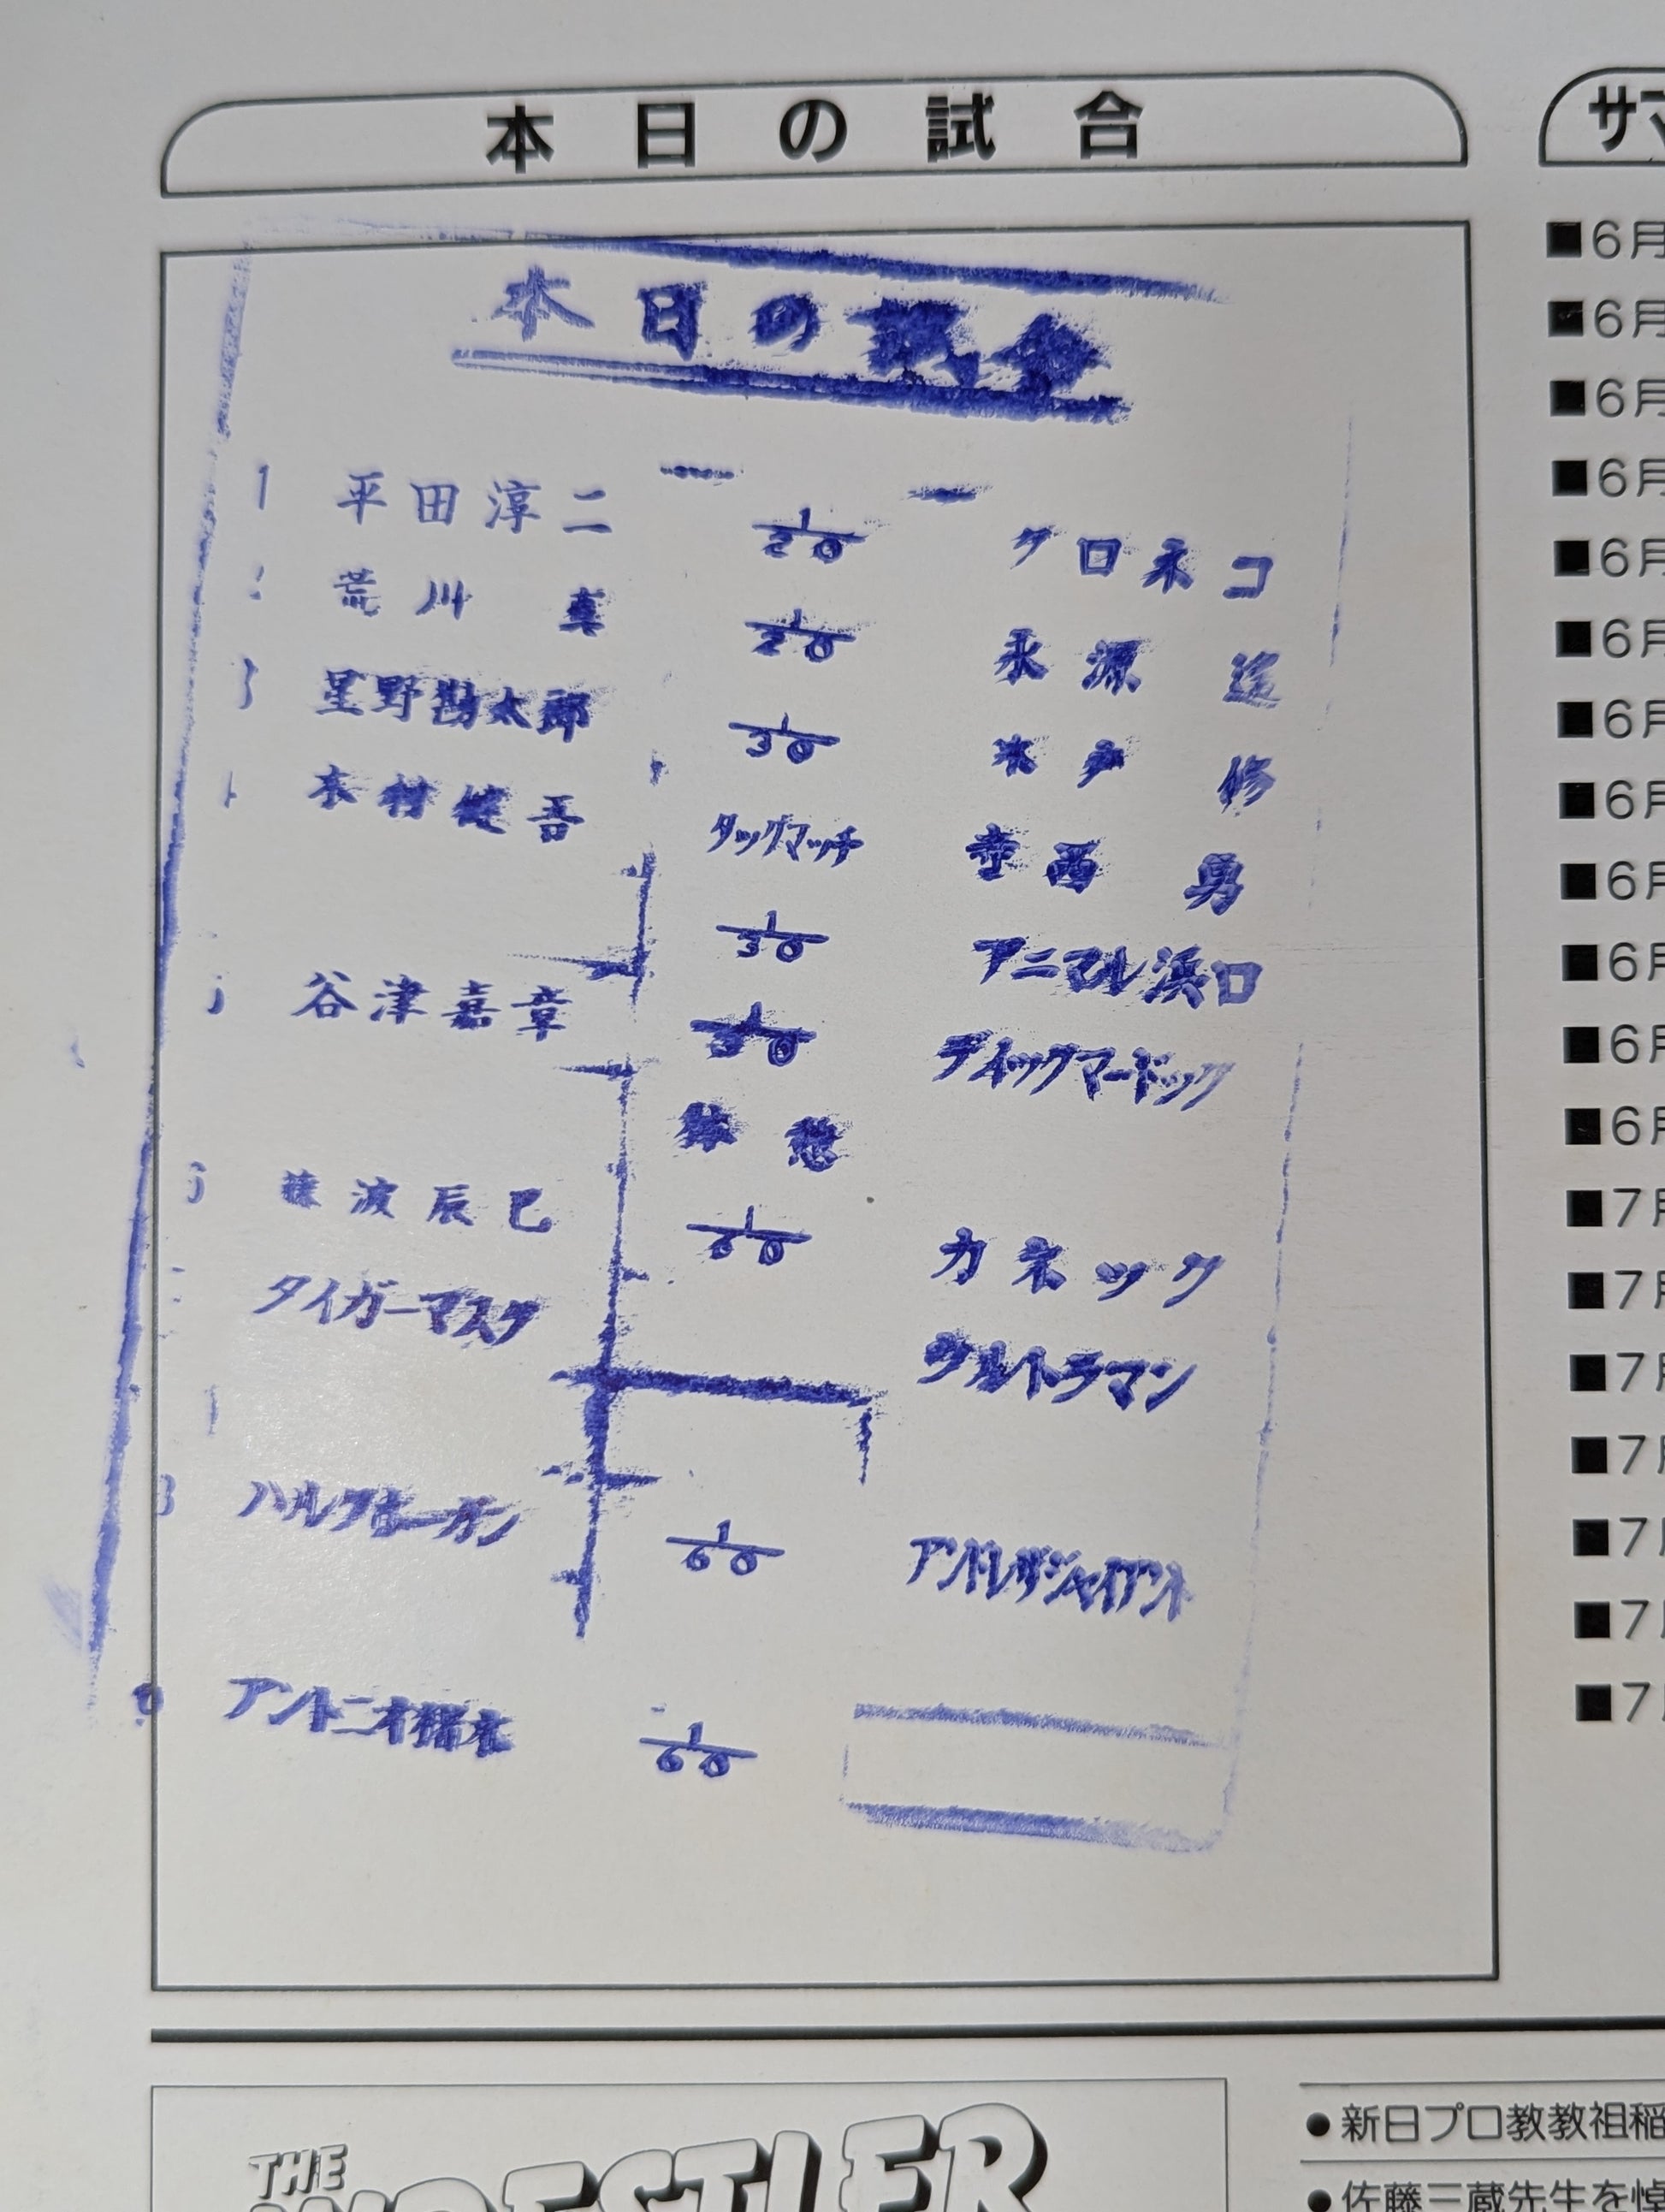 本日の試合
サマ
本日の試合
1 平田淳二 1/20 クロネコ
2 荒川真 1/20 永源遥
3 星野勘太郎 1/30 木戸修
木村健吾 タッグマッチ 寺西勇
1/30 アニマル浜口
5 谷津嘉章 1/30 ディックマードック
休憩
6 藤波辰巳 1/60 カネック
タイガーマスク ウルトラマン
8 ハルクホーガン 1/60 アンドレザジャイアント
アントニオ猪木 1/60
■6月
■6月
■6月
■6月
■6月
■6月
■6月
■6月
■6月
■6月
■6月
■6月
■7月
■7月
■7月
■7月
■7月
■7月
■7月
THE WRESTLER
●新日プロ教教祖稲
●佐藤三蔵先生を悼